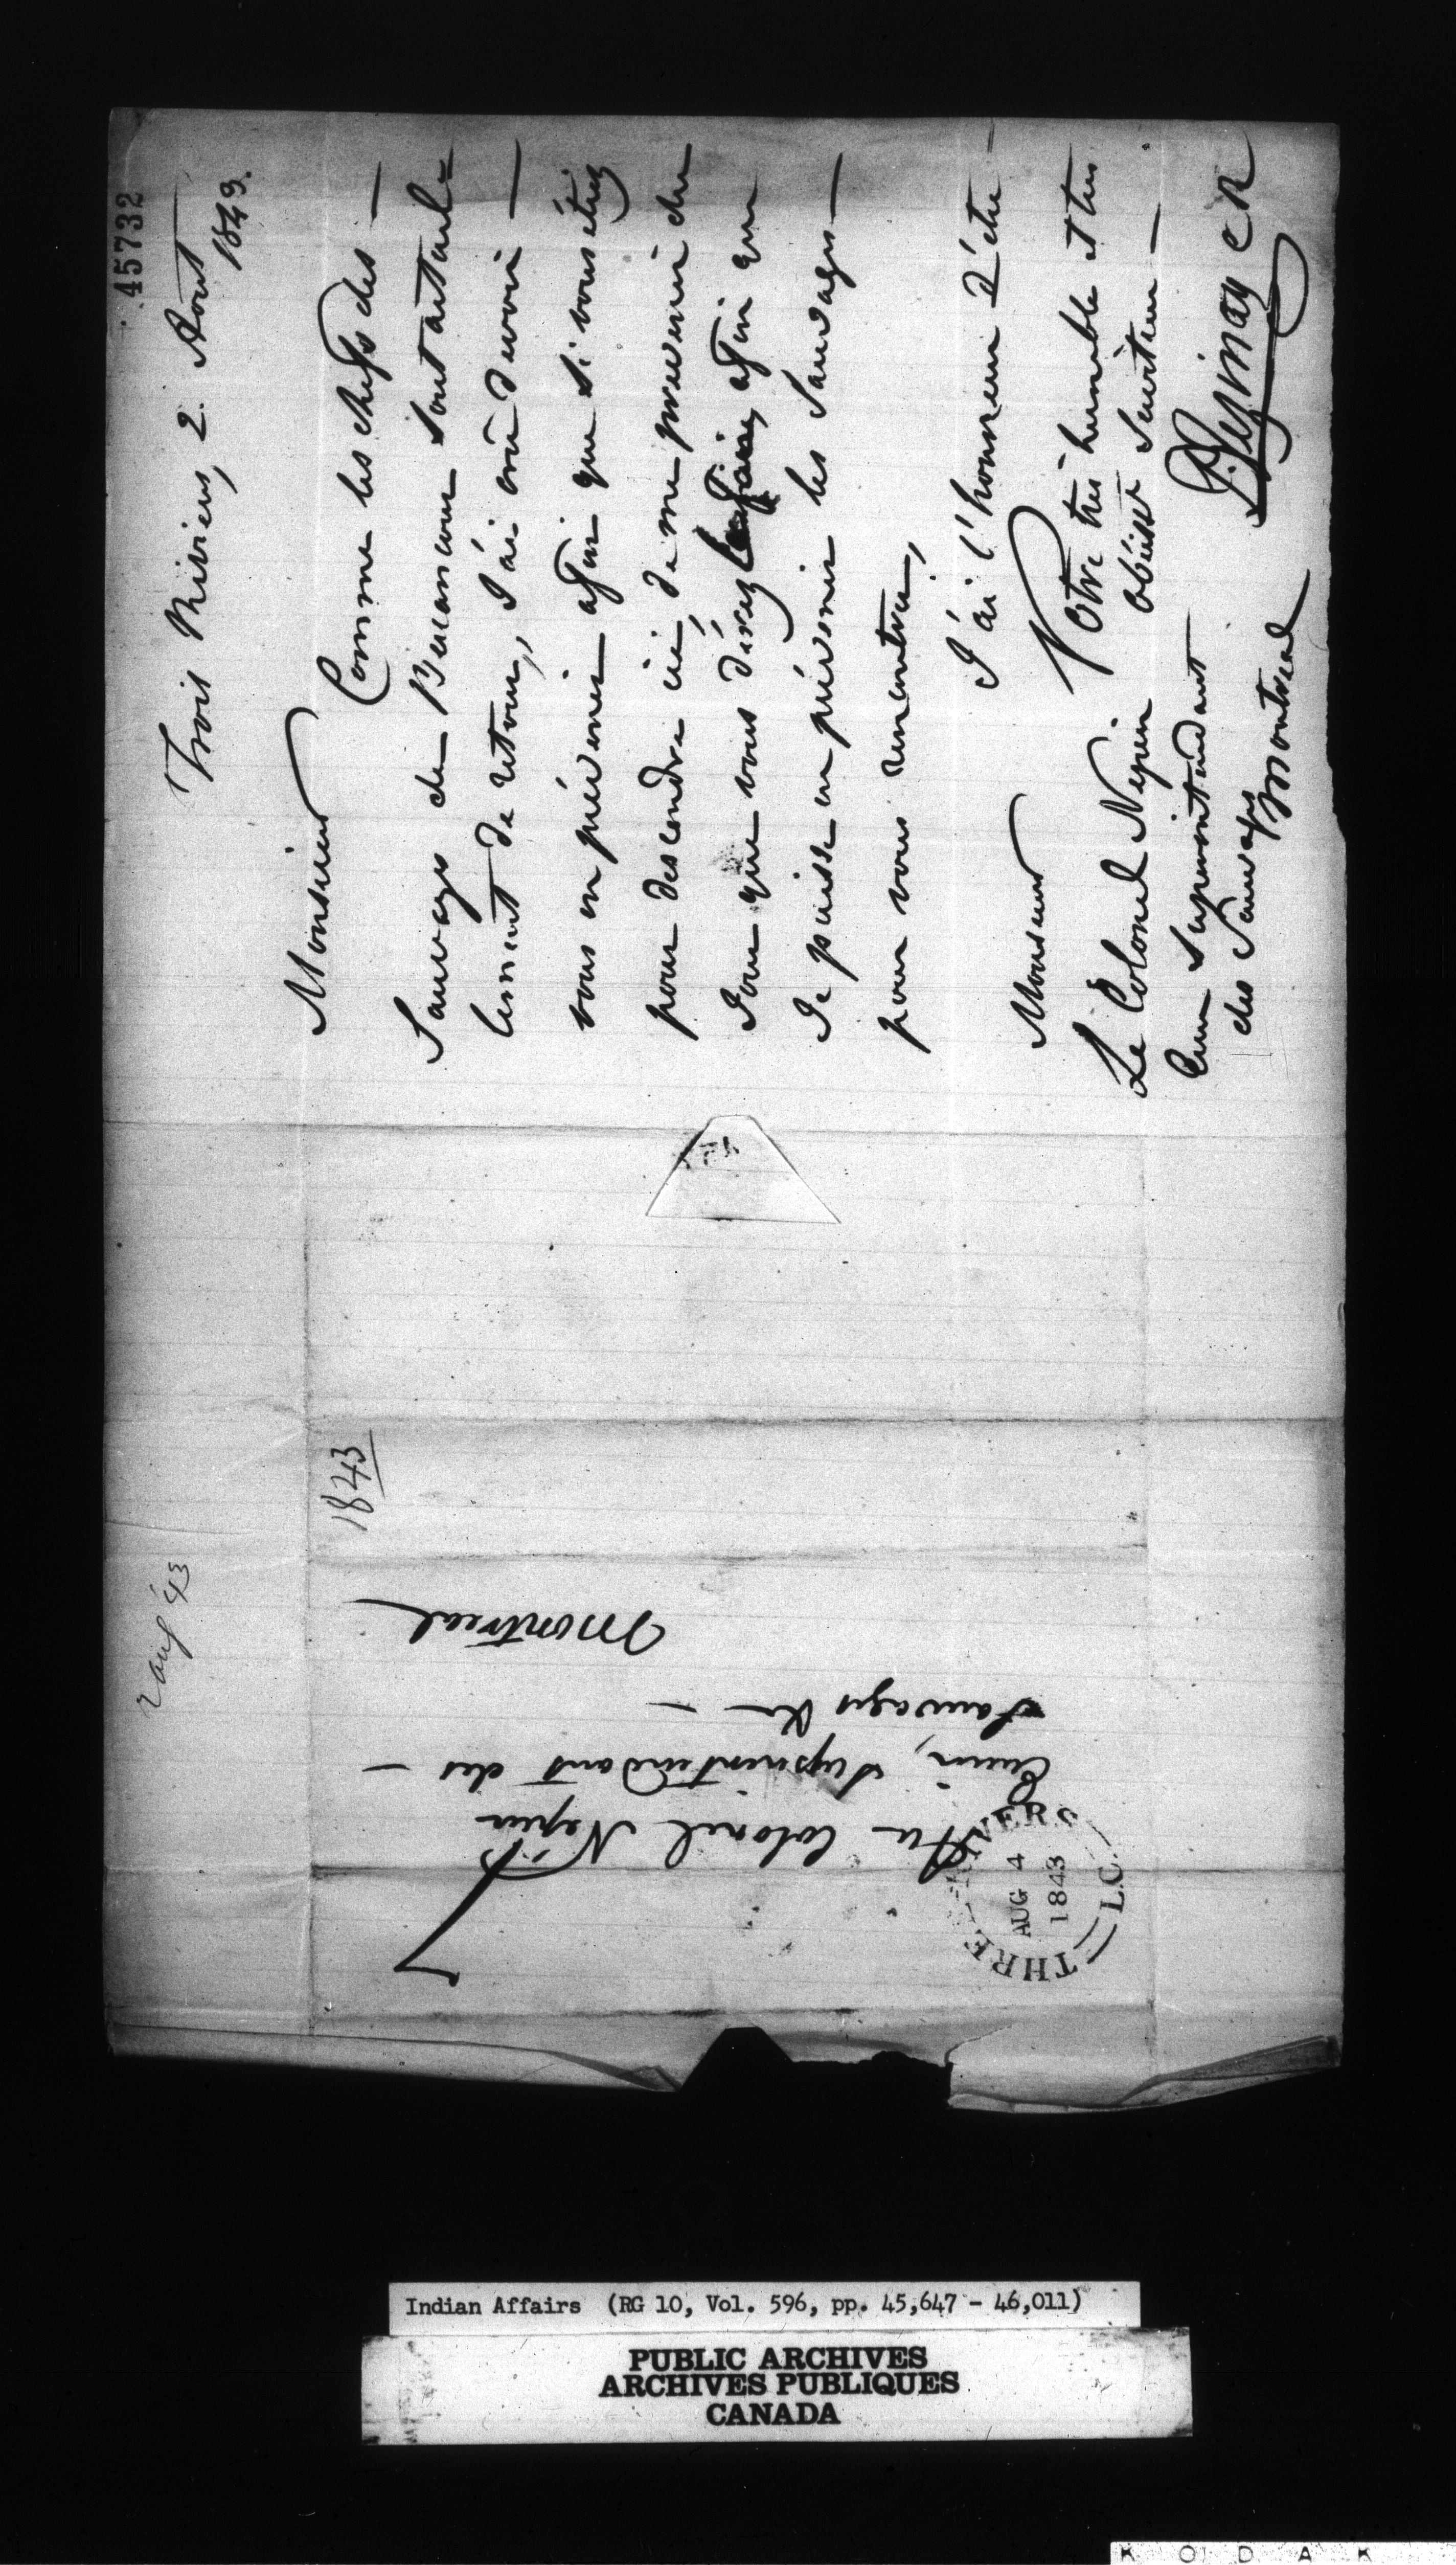 45732
Trois Rivieres, 2. Aout
1843.
Monsieur
Comme les chefs des —
Sauvages de Becancour sont actuel=
lement de retour, J'ai crû devoir —
vous en prévenir afin que si vous étiez
pour descendre ici, de me prevenir du
Jour que vous désirez afin que
Je puisse en prévenir les Sauvages —
pour vous rencontrer,
J'ai l'honneur d'être —
Monsieur
Votre très humble et tres
obéisst Serviteur —
Le Colonel Napier
Surintendant
des Sauvages
Montreal
1843
2 Aug '43
Au Colonel Napier
Surintendant des —
Sauvages &c —
Montreal
THREE-RIVERS
AUG 4
1843
L.C.
Indian Affairs (RG 10, Vol. 596, pp. 45,647 - 46,011)
PUBLIC ARCHIVES
ARCHIVES PUBLIQUES
CANADA
KODAK